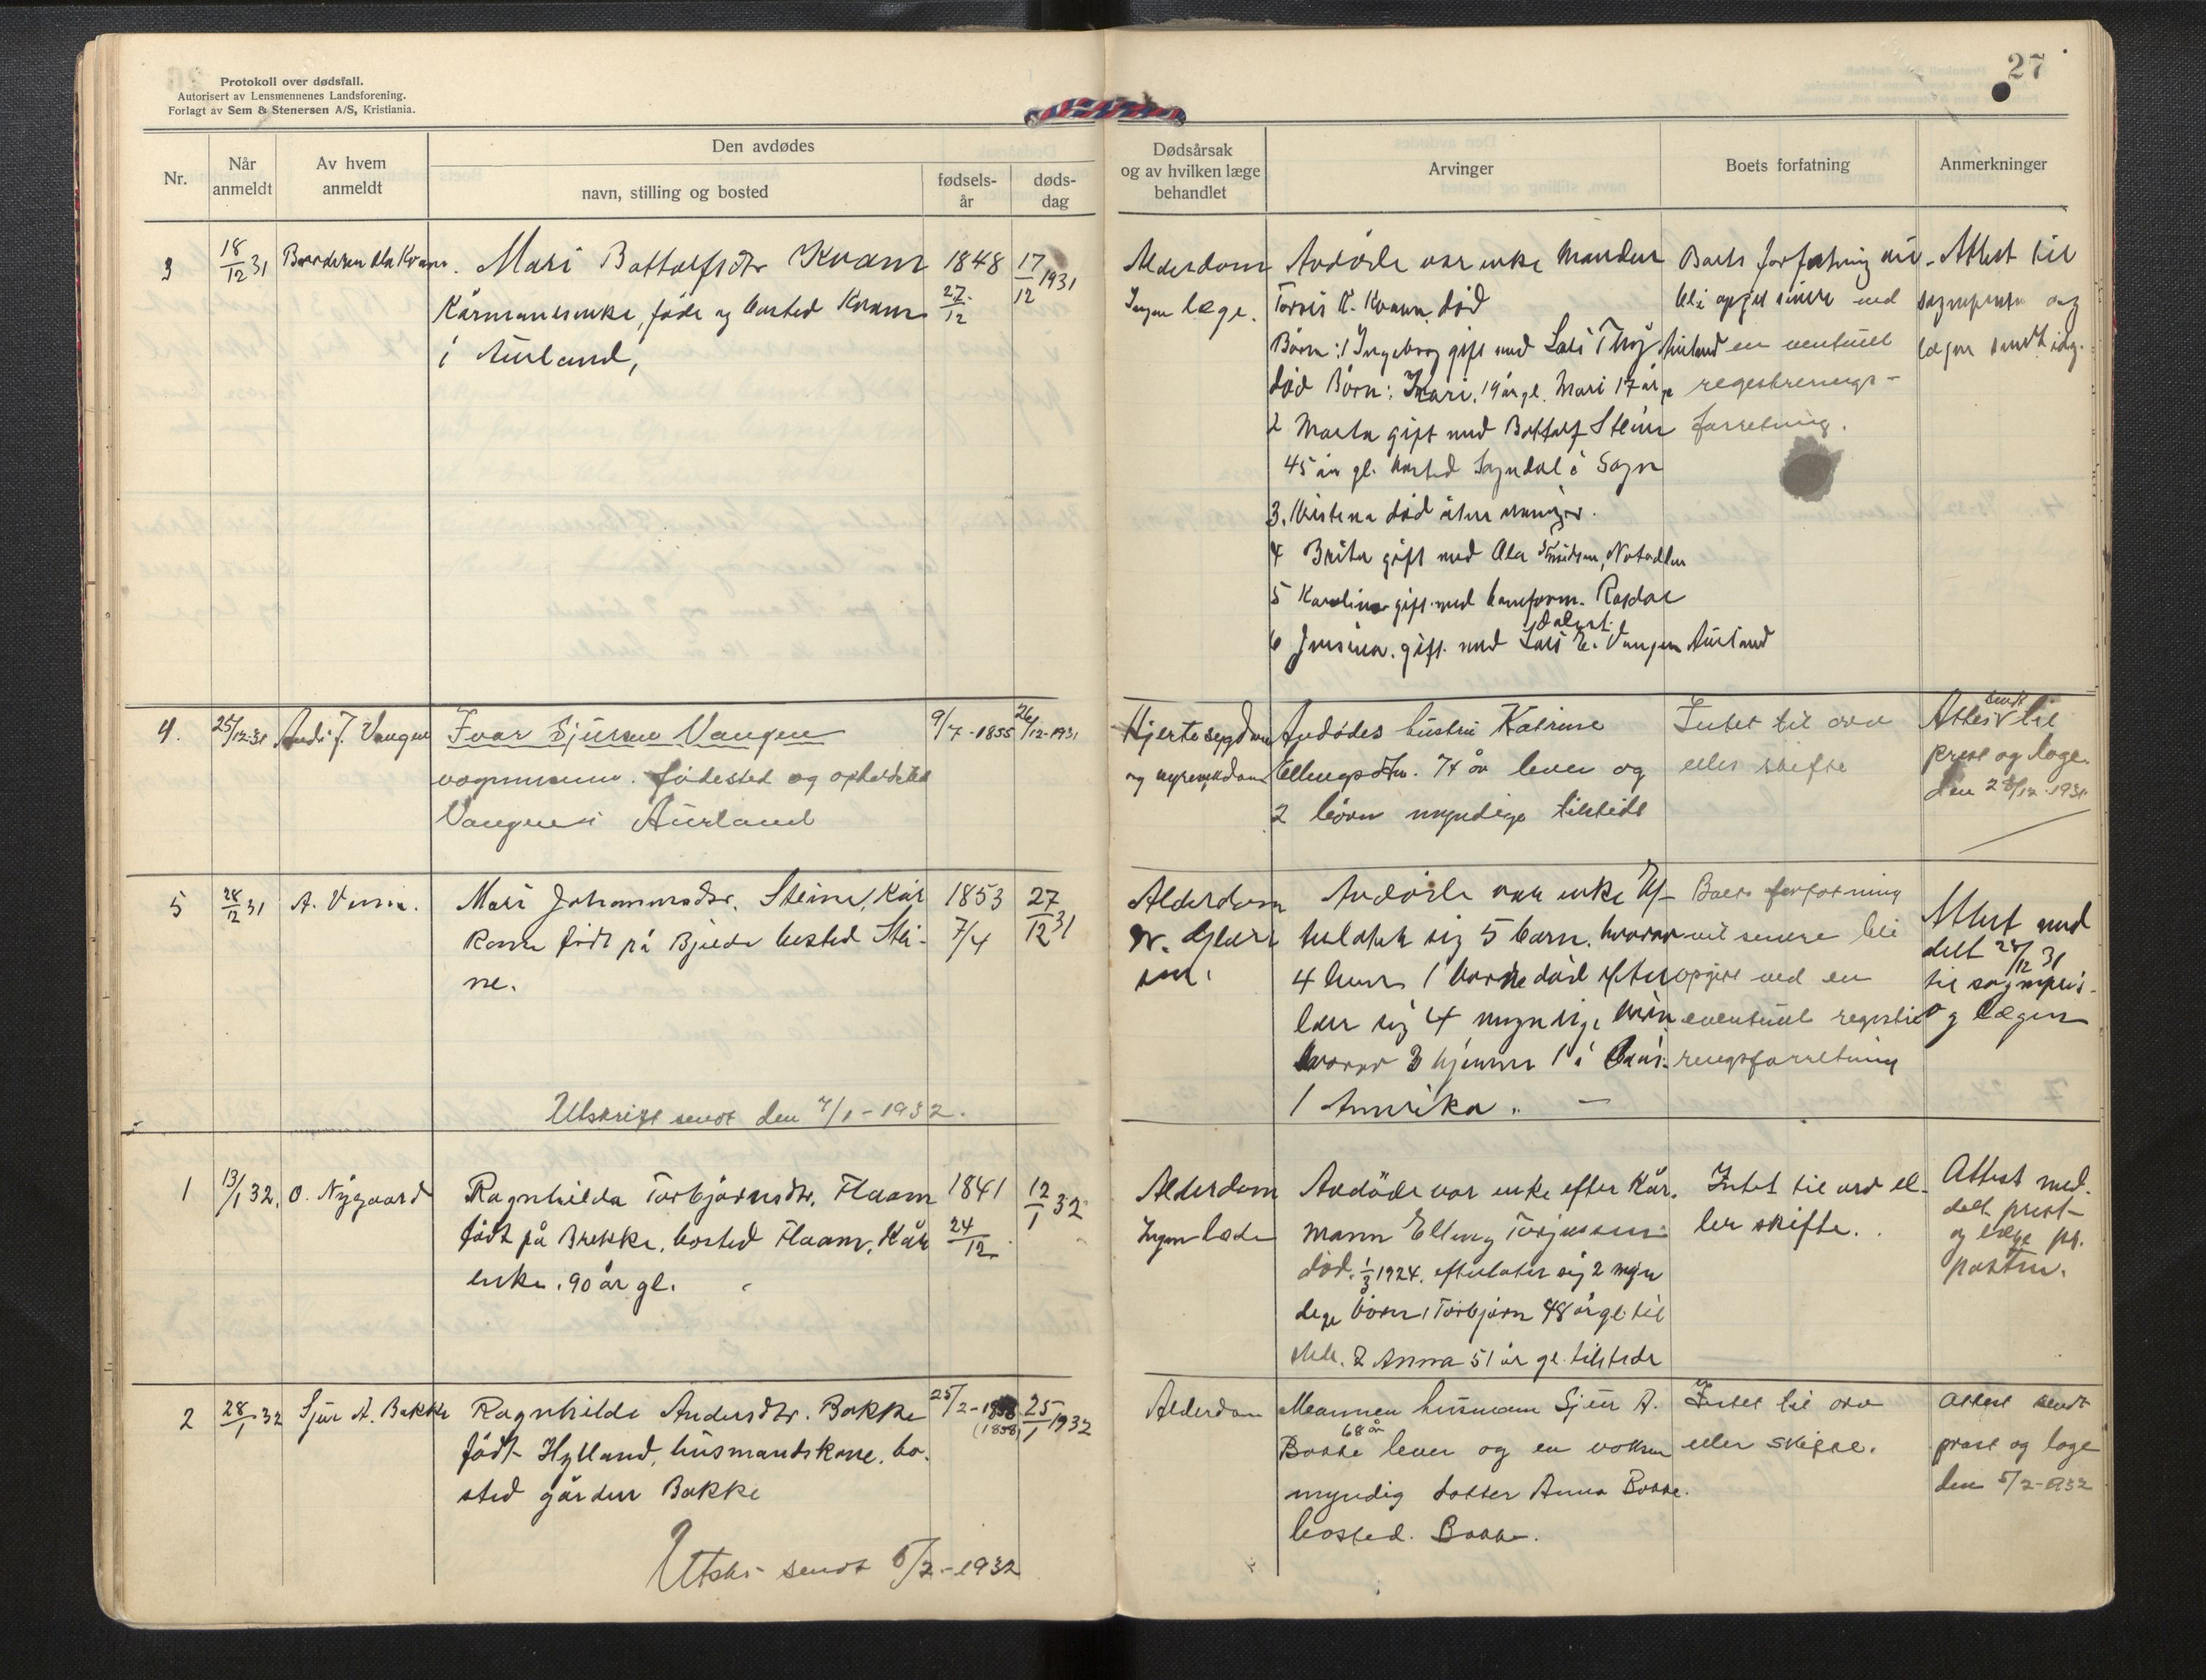 27
Protokoll over dødsfall.
Autorisert av Lensmennenes Landsforening.
Forlagt av Sem & Stenersen A/S, Kristiania.
Nr.
Når
anmeldt
Av hvem
anmeldt
Den avdødes
navn, stilling og bosted
fødsels-
år
døds-
dag
Dødsårsak
og av hvilken læge
behandlet
Arvinger
Boets forfatning
Anmerkninger
3
18/12 31
Mari Bottolfsdtr Kvam
Kårmannsenke, føde og bosted Kvam
i Aurland,
1848
27/12
17/12 1931
Alderdom
Ingen læge.
Avdøde var enke Manden
Kvam død
Børn: 1 Ingeborg gift med Lars
død Børn: 19 år gl. Mari 17 år
2 Marta gift med Bottolf Steine
45 år gl. bosted Sogndal i Sogn
3. død uten arvinger.
4 Brita gift med Ola Notodden
5 gift med
6 gift med Lars E. Vangen Aurland
Boets forfatning vil
bli opgit senere ved
en eventuell
registrerings-
forretning.
Attest til
sogneprest og
lægen sendt idag.
4.
25/12-31
J. Vangen
Ivar Sjursen Vangen
fødested og opholdsted
Vangen i Aurland
9/7-1855
26/12-1931
Hjertesygdom
og nyresykdom
Avdødes hustru Katrine
Ellingsdtr. 74 år lever og
2 børn myndige tilstede
Intet til arv
eller skifte
Attest sendt til
prest og læge
den 28/12-1931
5
28/12 31
A.
Mari Johannesdtr. Steine, Kår
kone født på Bjelde bosted Stei-
ne.
1853
7/4
27/12 31
Alderdom
Avdøde var enke Ef-
terlater sig 5 barn. hvorav
4 lever 1 død efter
later sig 4 myndige børn
hvorav 3 hjemme 1 i
1 Amerika.
Boets forfatning
vil senere bli
opgit ved en
eventuel registre
rengsforretning
Attest med
delt 28/12 31
til sogneprest
og lægen
Utskrift sendt den 7/1-1932.
1
13/1 32.
O. Nygaard
Ragnhilda Torbjørnsdtr. Flaam
født på Brekke, bosted Flaam, Kår
enke. 90 år gl.
1841
24/12
12/1 32
Alderdom
Ingen
Avdøde var enke efter Kår.
mann Elling Torjussen
død. 1/3 1924. efterlater sig 2 myn
dege børn 1 Torbjørn 48 år gl. til
stede. 2 Anna 51 år gl. tilstede
Intet til arv el-
ler skifte.
Attest med.
delt prest
og læge pr.
posten.
2
28/1 32
Sjur A. Bakke
Ragnhilde Andersdtr. Bakke
født Hylland, husmandskone. bo.
sted gården Bakke
25/2-1858
(1858)
25/1 1932
Alderdom
Mannen husmann Sjur A.
68 år
Bakke lever og en voksen
myndig datter Anna Bakke.
bosted. Bakke.
Intet til arv
eller skifte.
Attest sendt
prest og læge
den 5/2-1932
Utskr. sendt 5/2-1932